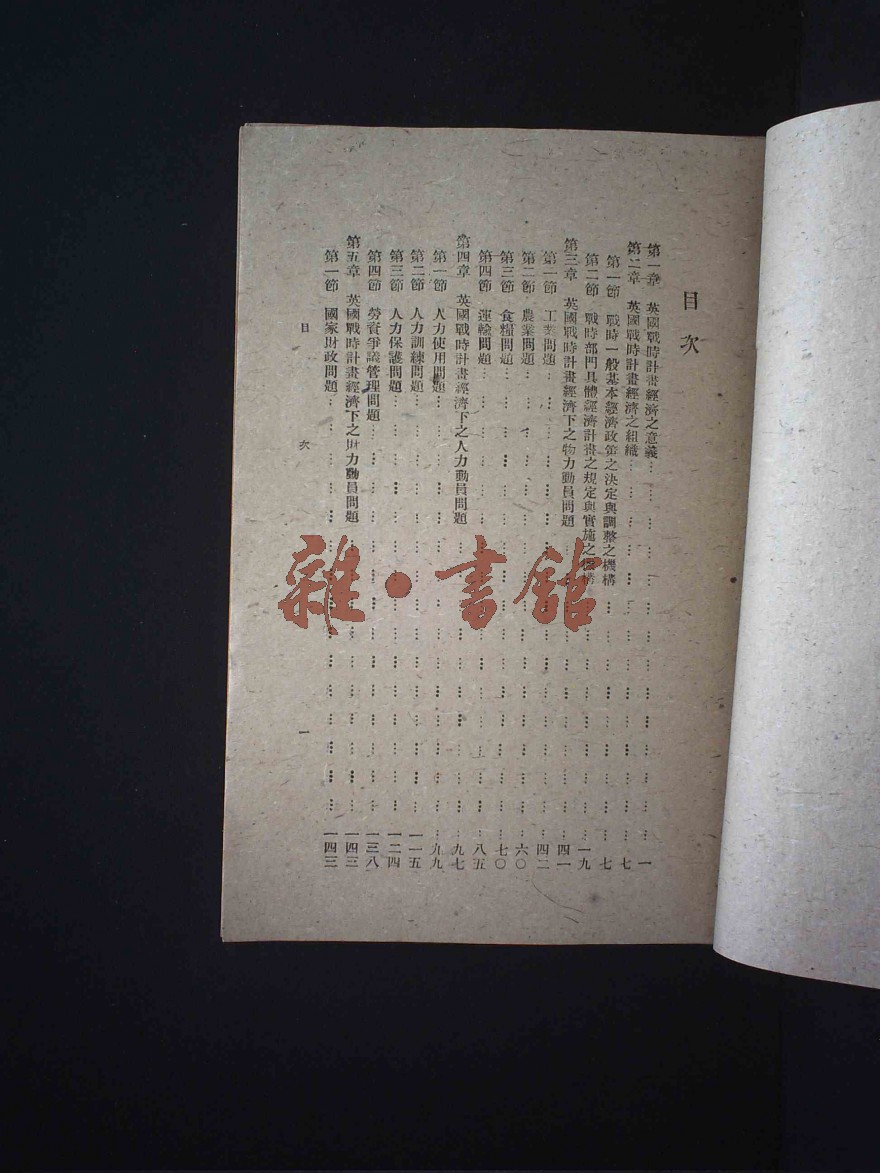 目次
第一章 英國戰時計畫經濟之意義……一
第二章 英國戰時計畫經濟之組織……七
第一節 戰時一般基本經濟政策之決定與調整之機構……七
第二節 戰時部門具體經濟計畫之規定與實施之機構……一九
第三章 英國戰時計畫經濟下之物力動員問題……四一
第一節 工業問題……四二
第二節 農業問題……六〇
第三節 食糧問題……七〇
第四節 運輸問題……八五
第四章 英國戰時計畫經濟下之人力動員問題……九七
第一節 人力使用問題……九九
第二節 人力訓練問題……一一五
第三節 人力保護問題……一二四
第四節 勞資爭議管理問題……一三八
第五章 英國戰時計畫經濟下之財力動員問題……一四三
第一節 國家財政問題……一四三
目次 一
雜·書館